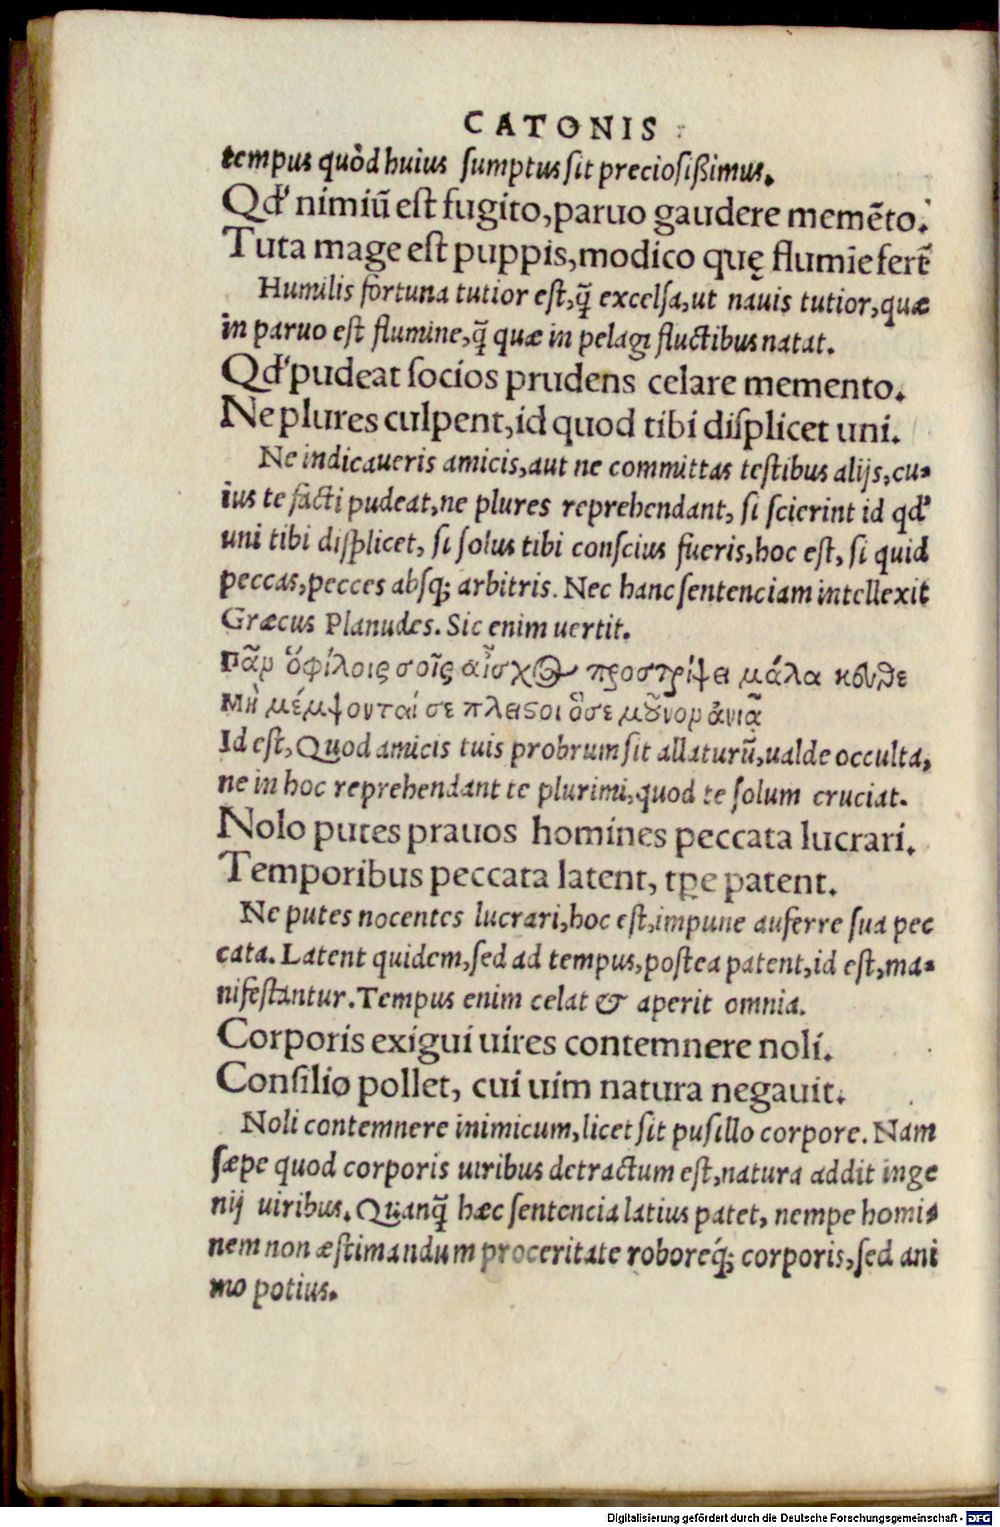 CATONIS
tempus quòd huius sumptus sit preciosißimus.
Qđ nimiũ est fugito, paruo gaudere memẽto.
Tuta mage est puppis, modico quę flumĩe ferẽ
Humilis fortuna tutior est, q̃ excelsa, ut nauis tutior, quæ
in paruo est flumine, q̃ quæ in pelagi fluctibus natat.
Qđ pudeat socios prudens celare memento.
Ne plures culpent, id quod tibi displicet uni.
Ne indicaueris amicis, aut ne committas testibus alijs, cu-
ius te facti pudeat, ne plures reprehendant, si scierint id qđ
uni tibi displicet, si solus tibi conscius fueris, hoc est, si quid
peccas, pecces absq; arbitris. Nec hanc sentenciam intellexit
Græcus Planudes. Sic enim uertit.
Πᾶρ ὅφίλοις σοῖς αἶσχος προστρίψει μάλα κεῦθε
Μὴ μέμψονταί σε πλεῖςοι ὅσε μοῦνορ ἀνιᾶ
Id est, Quod amicis tuis probrum sit allaturũ, ualde occulta,
ne in hoc reprehendant te plurimi, quod te solum cruciat.
Nolo putes prauos homines peccata lucrari.
Temporibus peccata latent, tꝑe patent.
Ne putes nocentes lucrari, hoc est, impune auferre sua pec
cata. Latent quidem, sed ad tempus, postea patent, id est, ma-
nifestantur. Tempus enim celat & aperit omnia.
Corporis exigui uires contemnere noli.
Consilio pollet, cui uim natura negauit.
Noli contemnere inimicum, licet sit pusillo corpore. Nam
sæpe quod corporis uiribus detractum est, natura addit inge
nij uiribus. Quanq̃ hæc sentencia latius patet, nempe homi-
nem non æstimandum proceritate roboreq́; corporis, sed ani
mo potius.
Digitalisierung gefördert durch die Deutsche Forschungsgemeinschaft - DFG